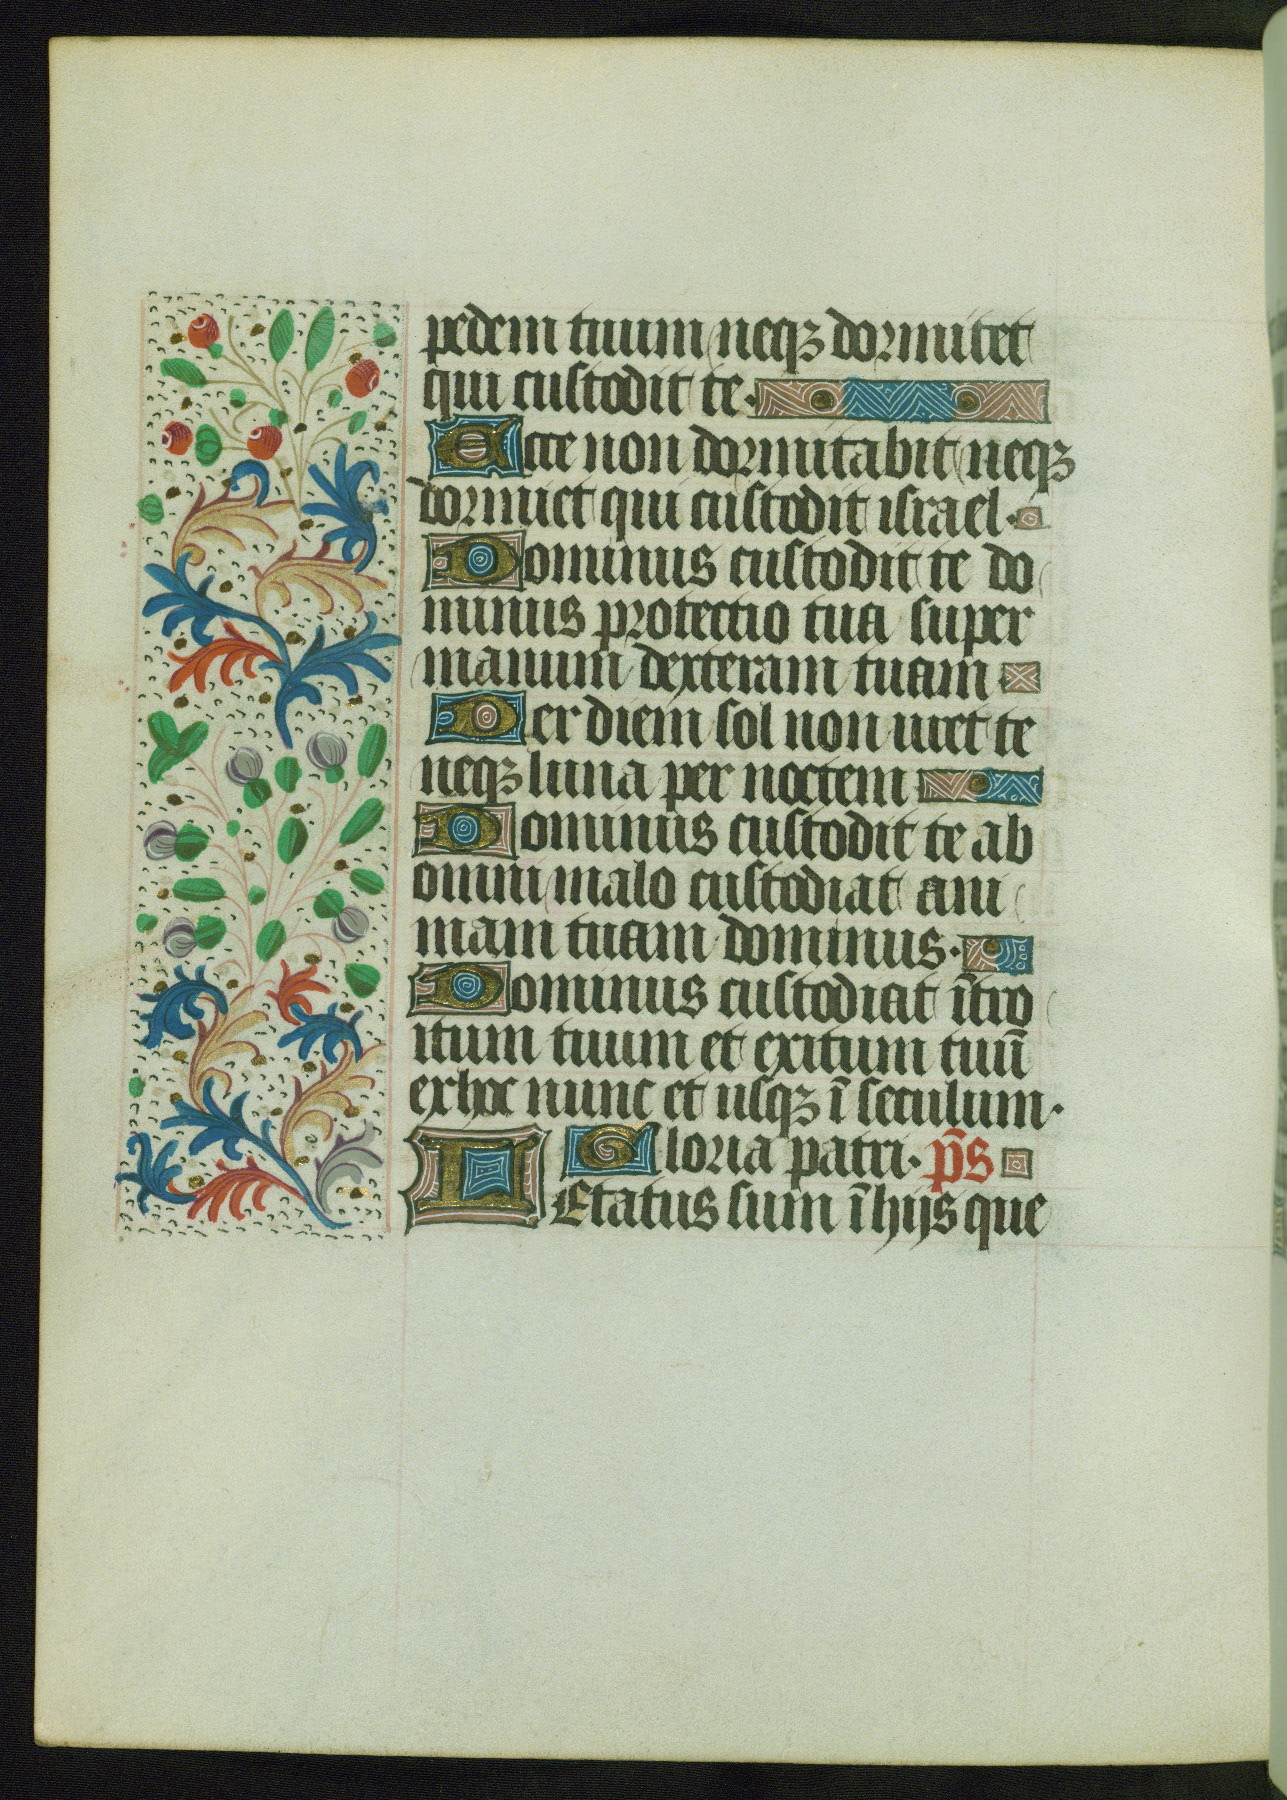 pedem tuum neqꝫ dormitet
qui custodit te.
Ecce non dormitabit neqꝫ
dormiet qui custodit israel.
Dominus custodit te do
minus protectio tua super
manum dexteram tuam
Per diem sol non uret te
neqꝫ luna per noctem
Dominus custodit te ab
omni malo custodiat ani
mam tuam dominus.
Dominus custodiat ītro
itum tuum et exitum tuū
exhoc nunc et usqꝫ ī seculum.
Gloria patri. p̄s
LEtatus sum ī hijs que